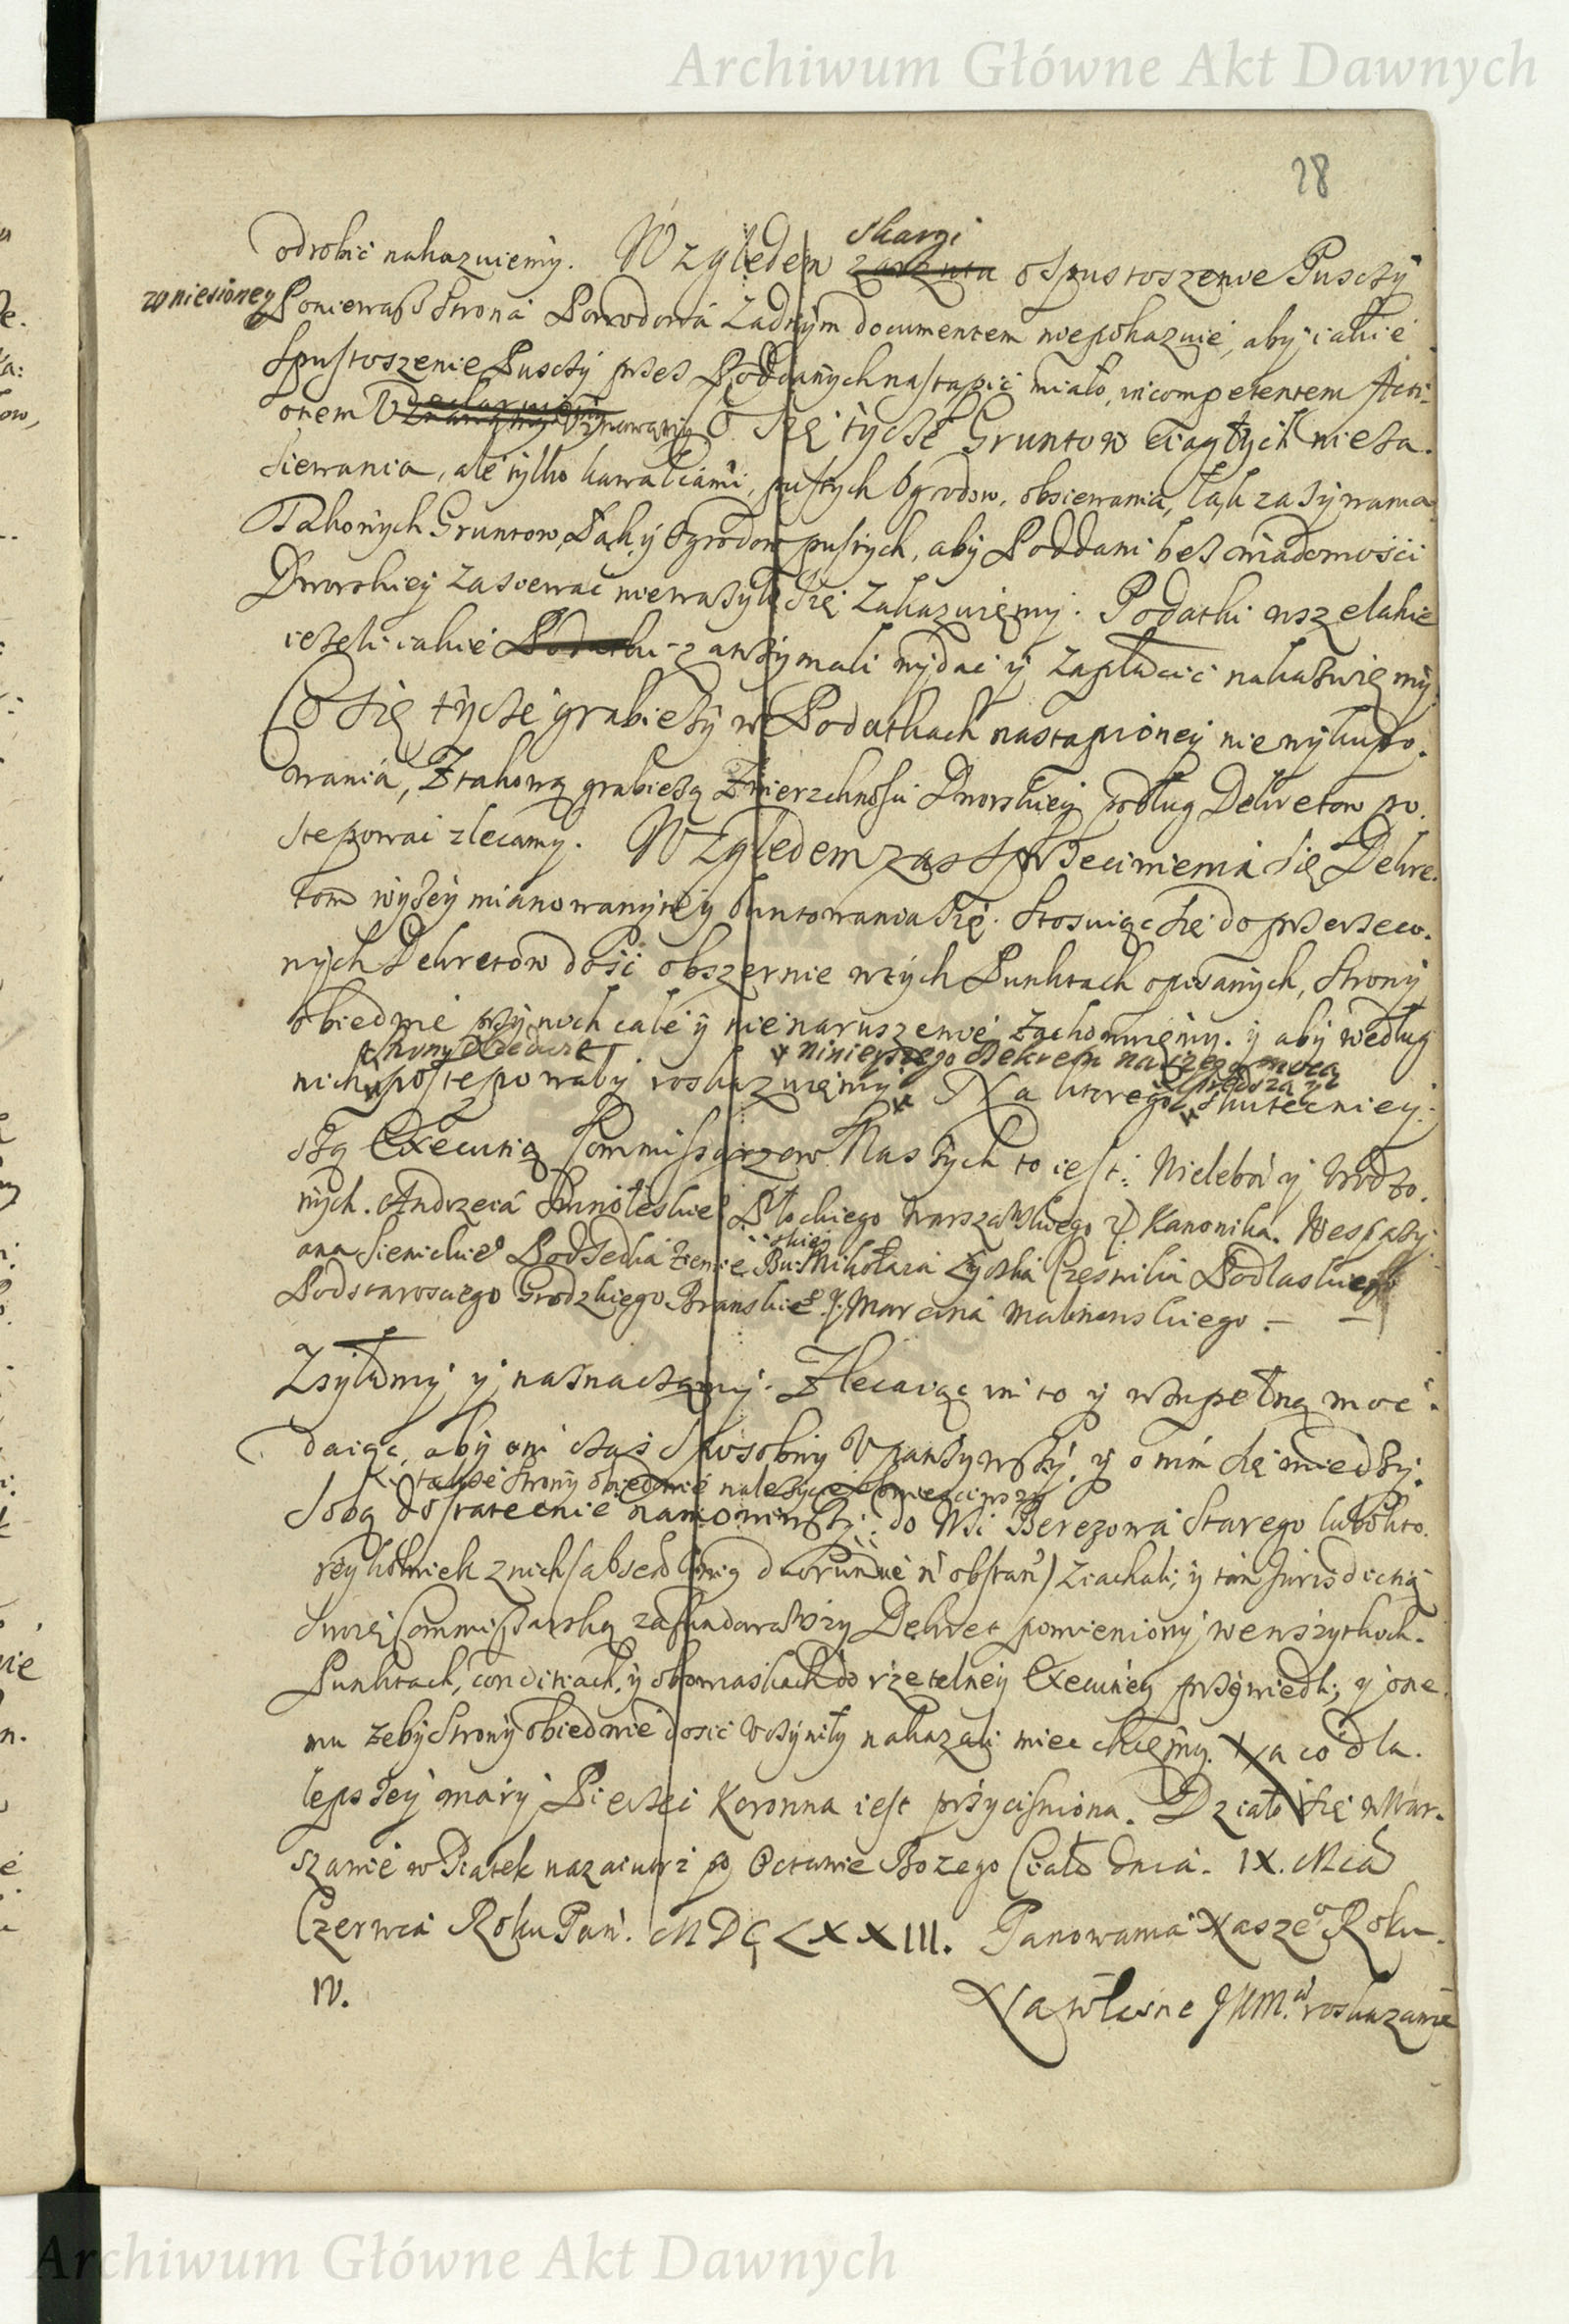 Archiwum Główne Akt Dawnych
28
odrobić nakazuiemy. Względem skargi zarzutu o spustoszenie Puszczy
wniesioney Poniewasz strona Powodowa żadnym documentem niepokazuie, aby iakie
spustoszenie Puszczy przez Poddanych nastąpić miało, incompetentem Acti-
onem declaruiemy Co się tycze Gruntow ciągłych nieza-
siewania, ale tylko kawałcami, pustych Ogrodow, obsiewania, łąk zażywania
Takowych Gruntow, Łąk y Ogrodow pustych, aby Poddani bez wiadomości
Dworskiey zasiewać nieważyli się zakazuięmy. Podatki wszelakie
ieżeli iakie Podatki zatrzymali wydać y zapłacić nakazuięmy
Co się tycze grabieży w Podatkach nastąpioney niewykupo-
wania, Z takową grabieżą Zwierzchności Dworskiey podług Dekretow po-
stępować zlecamy. Względem zaś sprzeciwienia się Dekre-
tom wyżey mianowanym y buntowania się. Stosuiąc się do przerzeczo-
nych Dekretów dość obszernie w tych Punktach opisanych, strony
obiedwie przy nich całe y nienaruszenie zachowuiemy. y aby według
strony obiedwie niniejszego dekretu naszego mocą
nich postępowały roskazuięmy. Na ktorego skutecznieÿ-
szą Execucią Commissarzow Naszych to iest: Wielebn y Urodzo-
nych. Andrzeia Płockiego Warszawskiego Kanonika. Wespazy-
ana Sienickie Podsędka Ziemie Bielskiej Mikołaia Zyczka Cześnika Podlaskiego
Podstarosciego Grodzkiego Branskie y Marcina Malinowskiego. —
Zsyłamy y naznaczamy. Zlecaiąc im to y wzupełną moc
daiąc, aby oni czas sposobny Upatrzywszy, y o nim się miedzy
takze strony obiedwie należycie obwieściwszy
sobą dostatecnie namowiwszy: do Wsi Berezowa Starego lubo kto-
rykolwiek z nich (absen) ziachali, y tam Jurisdictią
swoię Commissarską zafundowawszy Dekret pomieniony we wszytkich
Punktach, conditiach, y obowiąskach do rzetelney Execucięy przywiedli, y one-
mu żeby strony obiedwie dosić uczyniły nakazali miec chcęmy. Na co dla
lepszey wiary Pieczęć Koronna iest przycisniona. Działo się w War-
szawie w Piątek nazaiutrz po Octawie Bożego Ciała dnia. IX. Mca
Czerwca Roku Pań. MDCLXXIII. Panowania Naszeo Roku
IV.
Na własne JKM. roskazanie
Archiwum Główne Akt Dawnych